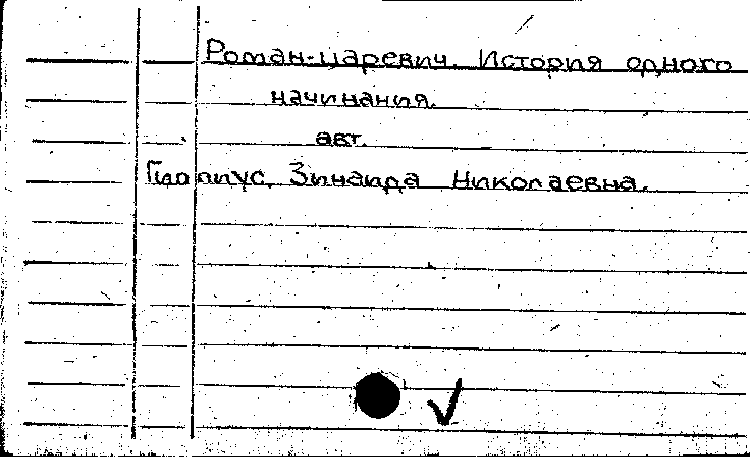 Роман-царевич. История одного
начинания.
авт.
Гиппиус, Зинаида Николаевна.